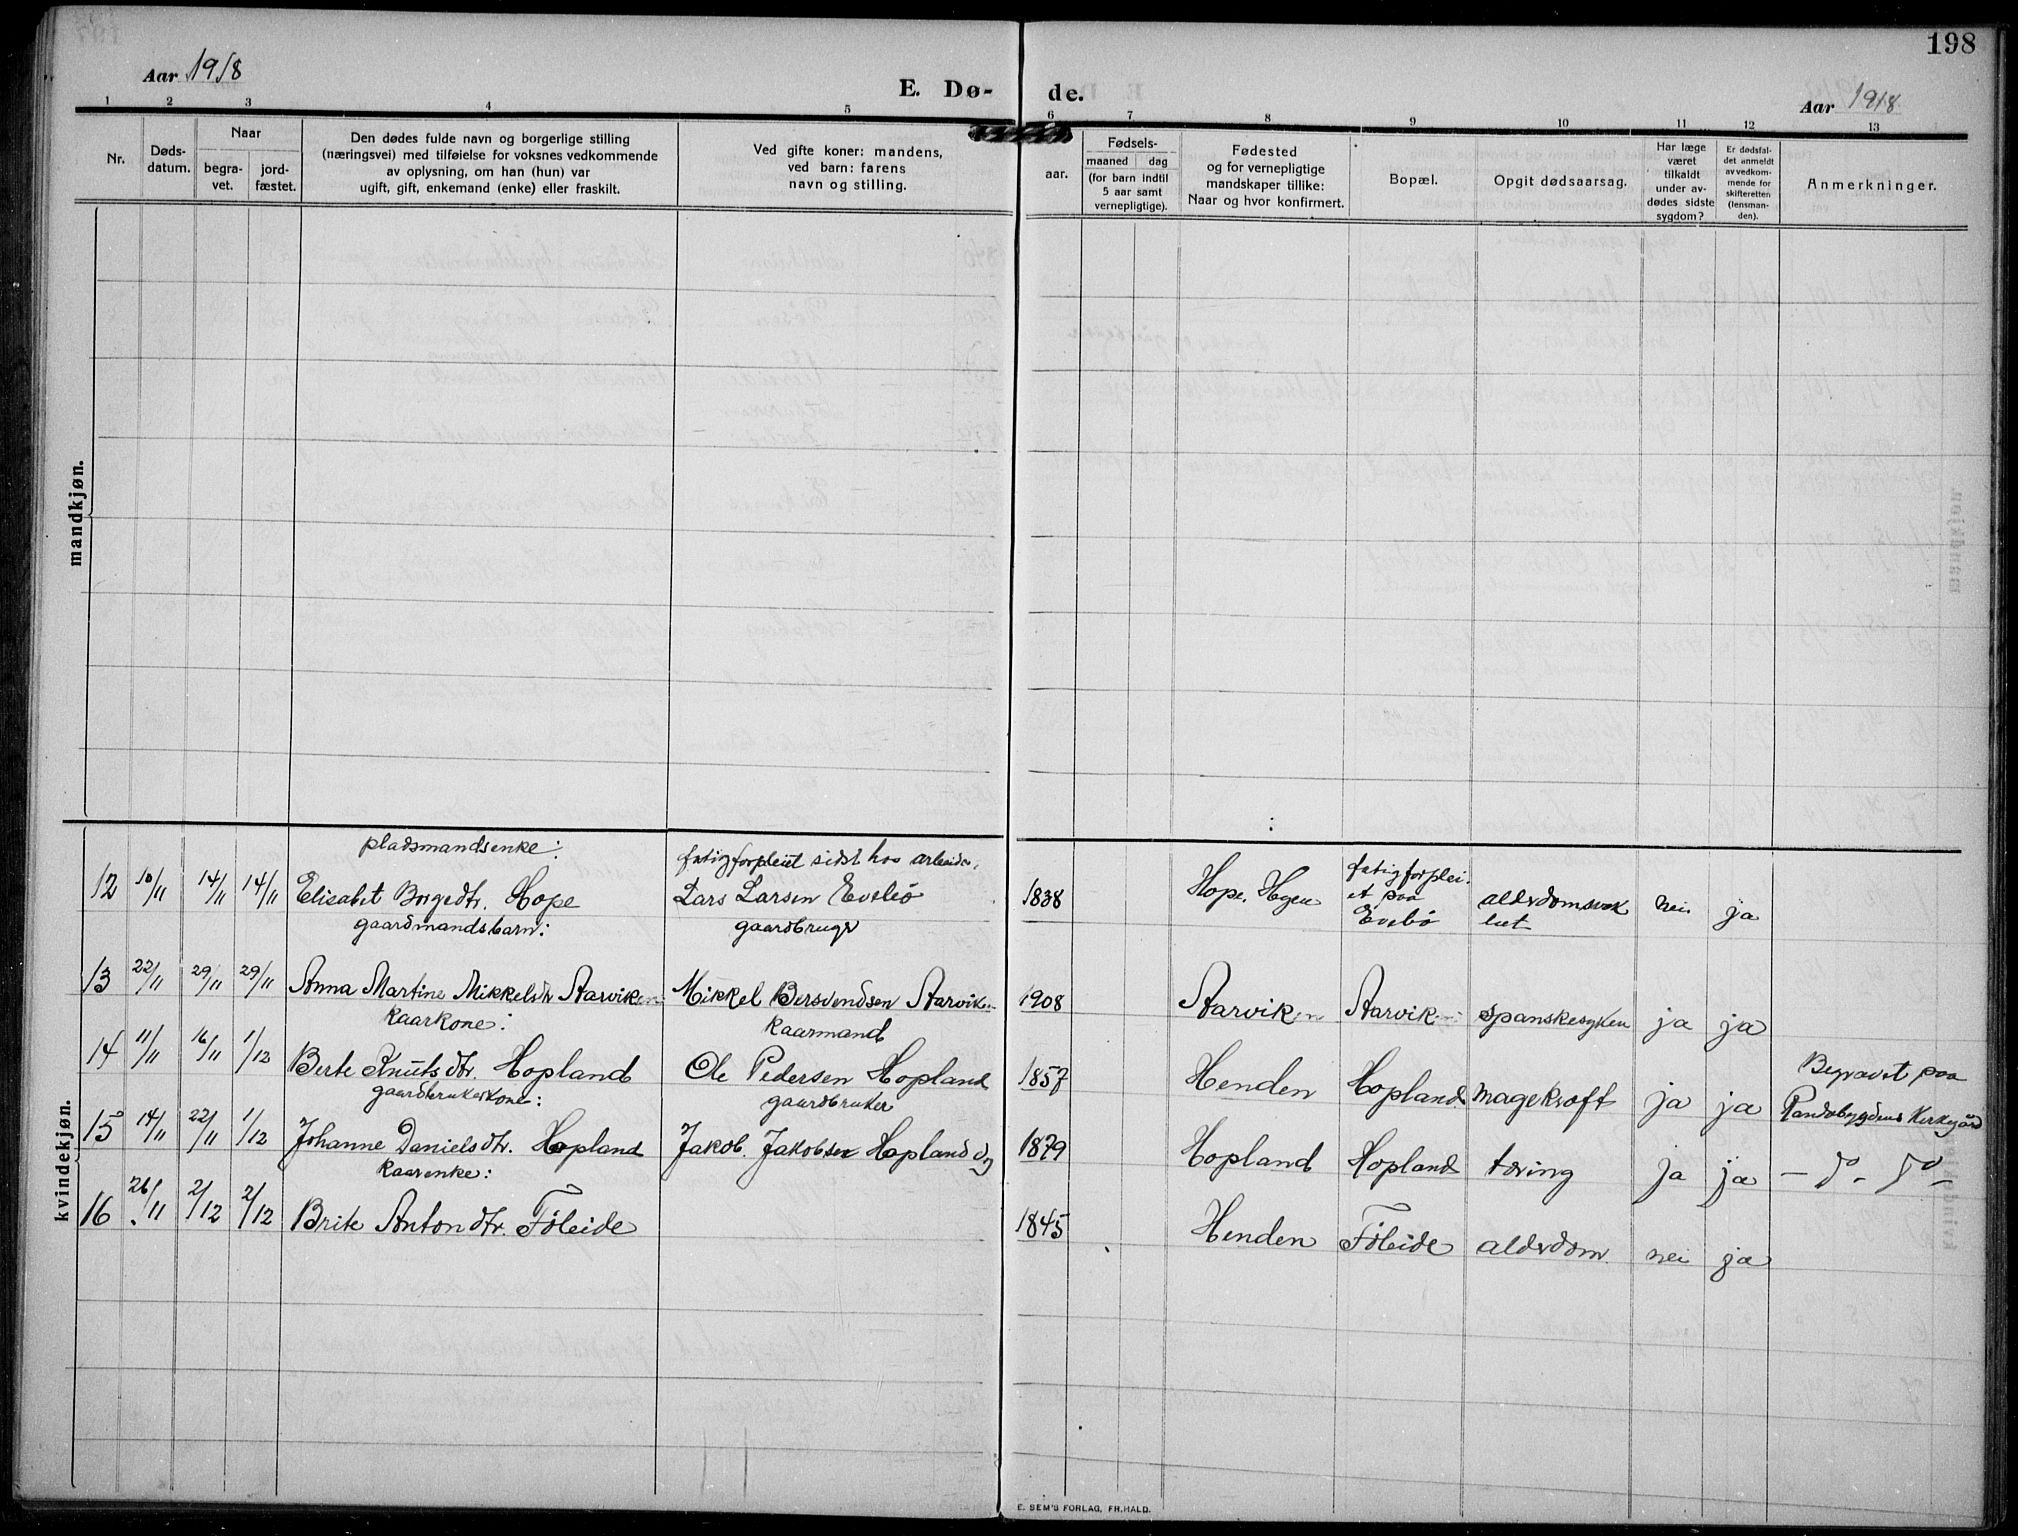 198
Aar 1918
E. Dø-
de.
Aar 1918
1 2 3 4 5 6 7 8 9 10 11 12 13
Nr.
Døds-
datum.
Naar
begra-
vet.
jord-
fæstet.
Den dødes fulde navn og borgerlige stilling
(næringsvei) med tilføielse for voksnes vedkommende
av oplysning, om han (hun) var
ugift, gift, enkemand (enke) eller fraskilt.
Ved gifte koner: mandens,
ved barn: farens
navn og stilling.
aar.
Fødsels-
maaned dag
(for barn indtil
5 aar samt
vernepligtige).
Fødested
og for vernepligtige
mandskaper tillike:
Naar og hvor konfirmert.
Bopæl.
Opgit dødsaarsag.
Har læge
været
tilkaldt
under av-
dødes sidste
sygdom?
Er dødsfal-
det anmeldt
av vedkom-
mende for
skifteretten
(lensman-
den).
Anmerkninger.
mandkjøn.
kvindekjøn.
pladsmandsenke: fatigforpleiet sidst hos arbeider, fatigforplei-
12 10/11 14/11 14/11 Elisabet Borgedtr. Hope Lars Larsen Evebø 1838 Hope, Hgen et paa alderdomsvek nei ja
Evebø
gaardmandsbarn: gaardbruger
13 22/11 29/11 29/11 Anna Martine Mikkelsdtr Aarviken Mikkel Bersvendsen Aarviken 1908 Aarviken Aarviken spanskesyken ja ja
kaarkone: kaarmand
14 11/11 16/11 1/12 Berte Knutsdtr. Hopland Ole Pedersen Hopland 1857 Henden Hopland magekræft ja ja Begravet paa
Randabygdens Kirkegård
gaardbrukerkone: gaardbruker
15 14/11 22/11 1/12 Johanne Danielsdtr. Hopland Jakob Jakobsen Hopland 1879 Hopland Hopland tæring ja ja - do - do -
kaarenke:
16 26/11 2/12 2/12 Brite Antondtr. Föleide 1845 Henden Föleide alderdom nei ja
E. SEM'S FORLAG, FR.HALD.